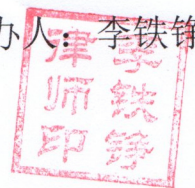 办人：李铁铮
李铁铮
律师印